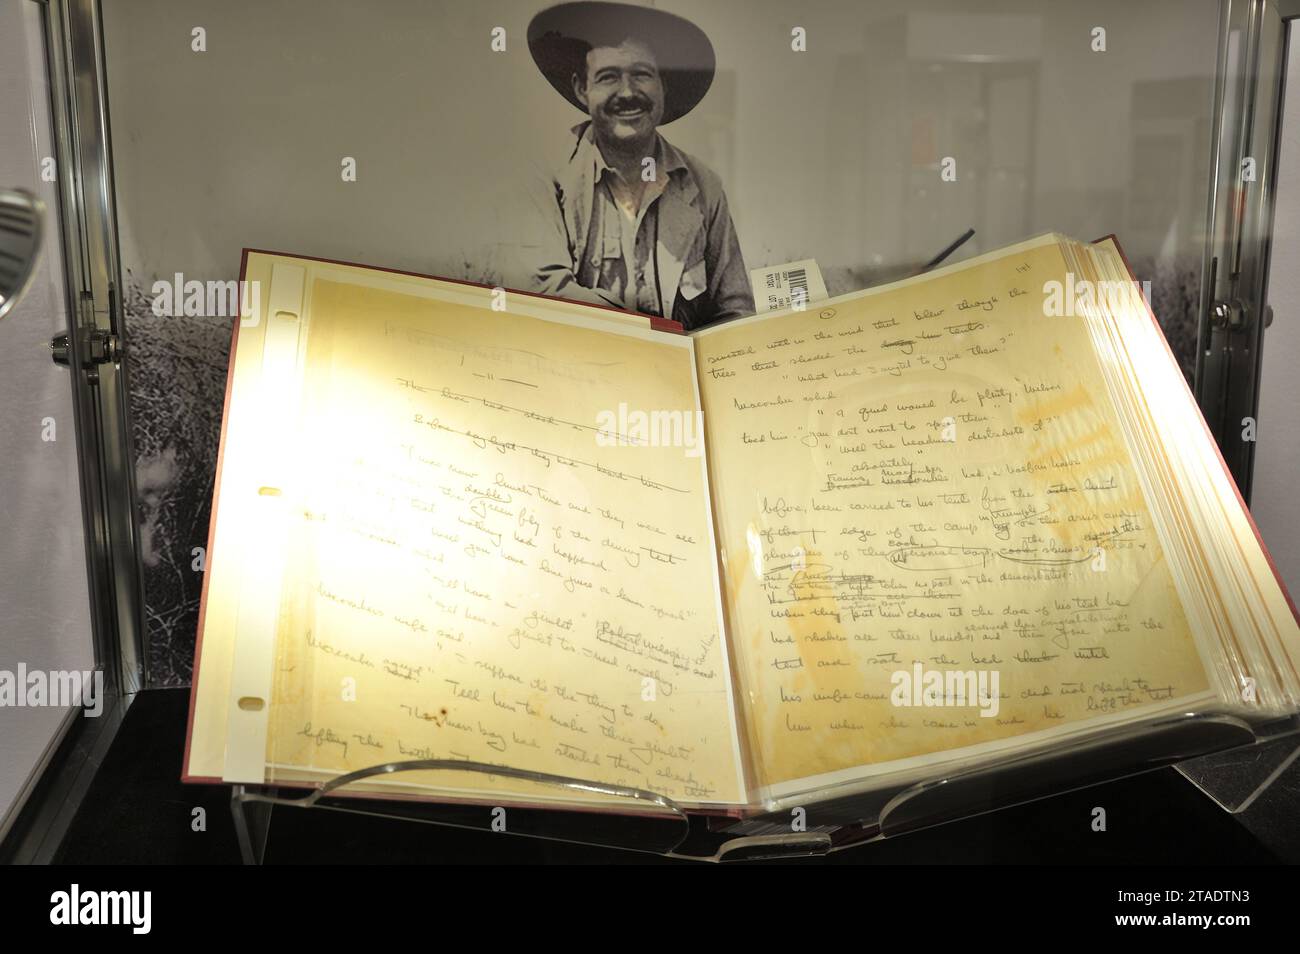 1
The lion had stood a
Before daylight they had heard him
It was now lunch time and they were all
sitting under the double green fly of the dining tent
that nothing had happened.
will you have lime juice or lemon squash?"
Macomber asked.
"I'll have a gimlet" Robert Wilson told him
"I'll have a gimlet too. I need something,"
Macomber's wife said.
"I suppose it's the thing to do,"
Macomber agreed. "Tell him to make three gimlets."
The mess boy had started them already,
lifting the bottles
2
sweated wet in the wind that blew through the
trees that shaded the tents.
"What had I ought to give them?"
Macomber asked.
"A quid would be plenty," Wilson
told him. "You don't want to spoil them."
"Will the headman distribute it?"
"Absolutely"
Francis Macomber had, a half an hour
before, been carried to his tent from the
edge of the camp in triumph on the arms and
shoulders of the cook, the personal boys, the
and
The gun bearers had taken no part in the demonstration.
When the native boys put him down at the door of his tent he
had shaken all their hands, received their congratulations and then gone into the
tent and sat on the bed until
his wife came in. She did not speak to
him when she came in and he left the tent
alamy
Image ID: 2TADTN3
www.alamy.com